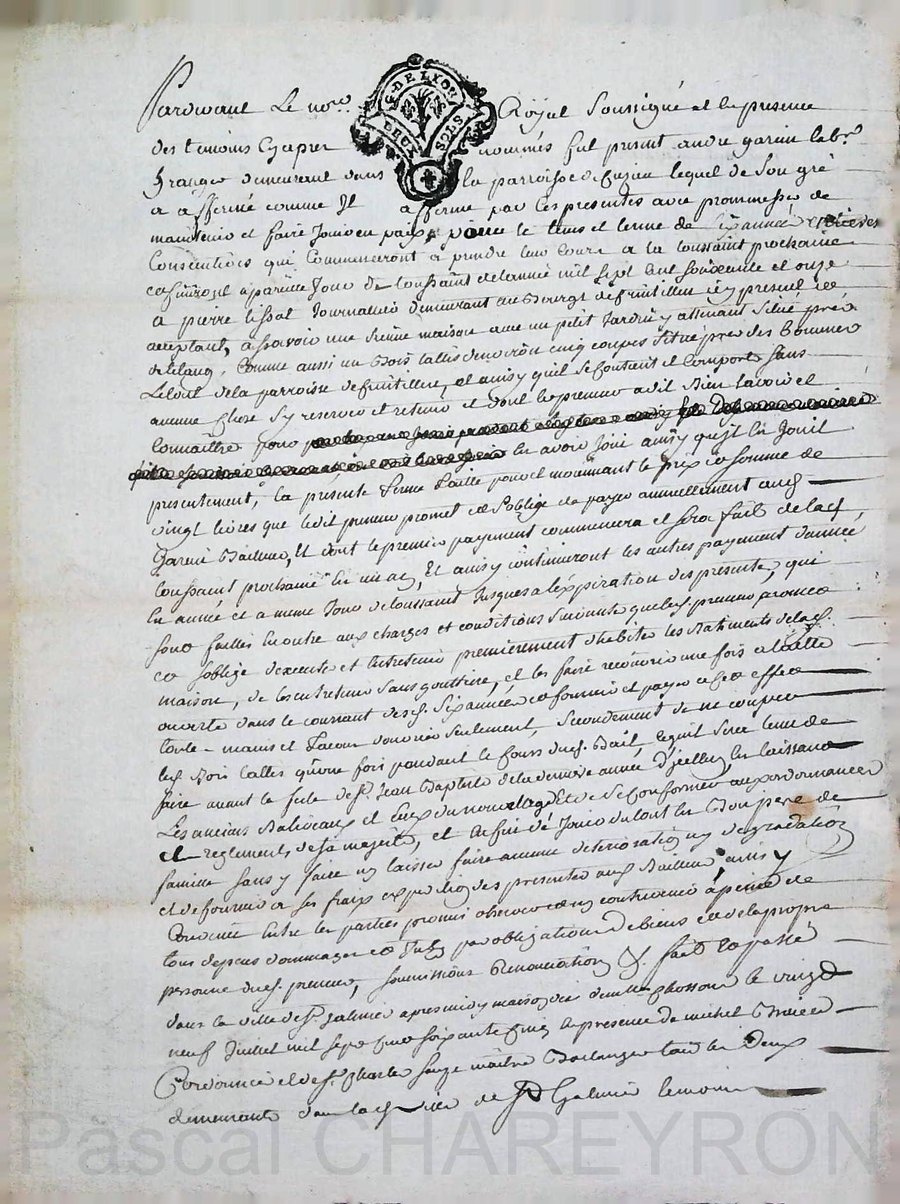 G. DE LYON
DEUX SOLS
Pardevant Le no.re Royal soussigné et en presence
des temoins Cyapres nommés fut present andre garin lab.r
granger demeurant dans la parroisse de Cuzieu lequel de son gré
a affermé comme Il afferme par ces presentes avec promesses de
maintenir et faire Jouir en paix, pour le tems et terme de six années
Consecutives qui Commenceront a prendre leur cours a la toussaint prochaine
et finiront a pareille Jour de toussaint de lannée mil sept cent soixante et onze
a pierre Journalier demeurant au Bourg de ci present et
acceptant, assavoir une sienne maison avec un petit Jardin y attenant situé prés
de letang, Comme aussi un Bois taillis denviron cinq coupes situé prés des
de la parroisse de et ainsy quil se Contient et Comporte sans
aucune chose s'y reserver et retenir et dont le preneur a dit Bien savoir et
Connaître pour en avoir Joui ainsy quil en Jouit
presentement, la presente ferme faitte pour et moiennant le prix et somme de
vingt livres que ledit preneur promet et s'oblige de payer annuellement aud.
garin Bailleur, Et dont le premier payement commencera et sera fait de lad.
toussaint prochaine en un an, Et ainsy continueront les autres payement dannée
en année et a meme Jour de toussaint Jusques a lexpiration des presente, qui
sont faittes en outre aux charges et conditions suivante que led. preneur promet
et soblige dexecuter et entretenir premierement dhabiter les Batiments de lad.
maison, de les entretenir sans gouttiere, et les faire recouvrir une fois a taille
ouverte dans le courant desd. six années et fournir et payer a cet effet
toute - mains et facon douvrier seulement, secondement de ne couper
led. Bois tallis quune fois pendant le Cours dud. Bail, lequil sera tenu de
faire avant la feste de st. Jean Baptiste de la derniere année d'icelluy en laissant
Les anciens Baliveaux et Ceux du nouvel age Et de se Conformer aux ordonnances
et reglements de sa majesté, et Enfin de Jouir du tout en Bon pere de
famille sans y faire ny laisser faire aucune deterioration ny degradation
et de fournir a ses fraix expedition des presentes aud. Bailleur, ainsy
Convenu Entre les parties promis observer et ny contrevenir à peine de
tous depens dommages et par obligation de biens et de la propre
personne dud. preneur, soumissions Renonciation & fait et passé
dans la ville de st. galmier apresmidy maison de le vingt
neuf Juillet mil sept cent soixante cinq en presence de michel
Cordonnier et de s.r Charles maitre Boulanger tous les deux
demeurants dans lad. ville de St Galmier temoins
Pascal CHAREYRON